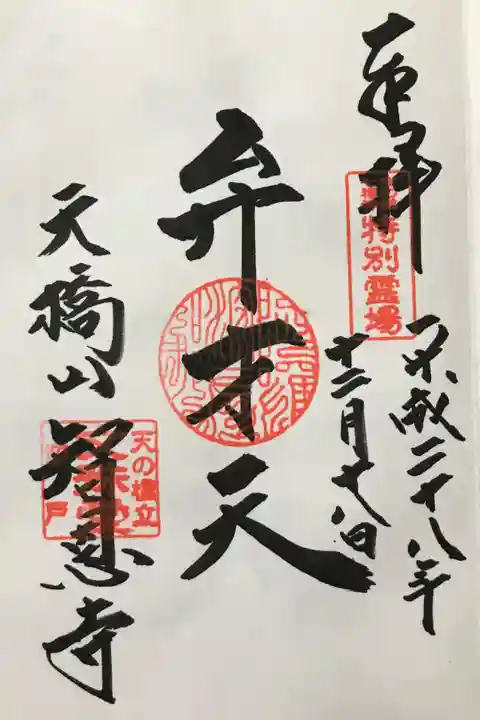 奉拝
特別霊場
平成二十八年
十二月十八日
弁才天
天橋山
智恩寺
天の橋立